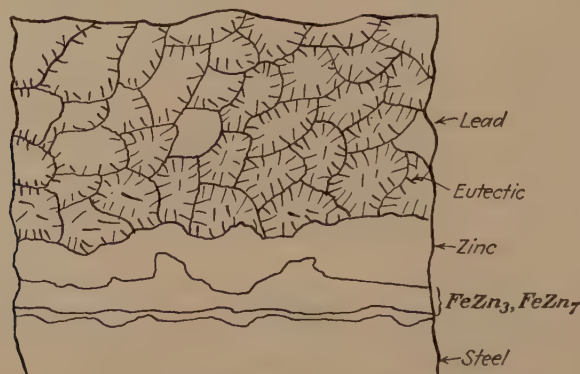 Lead
Eutectic
Zinc
FeZn₃, FeZn₇
Steel